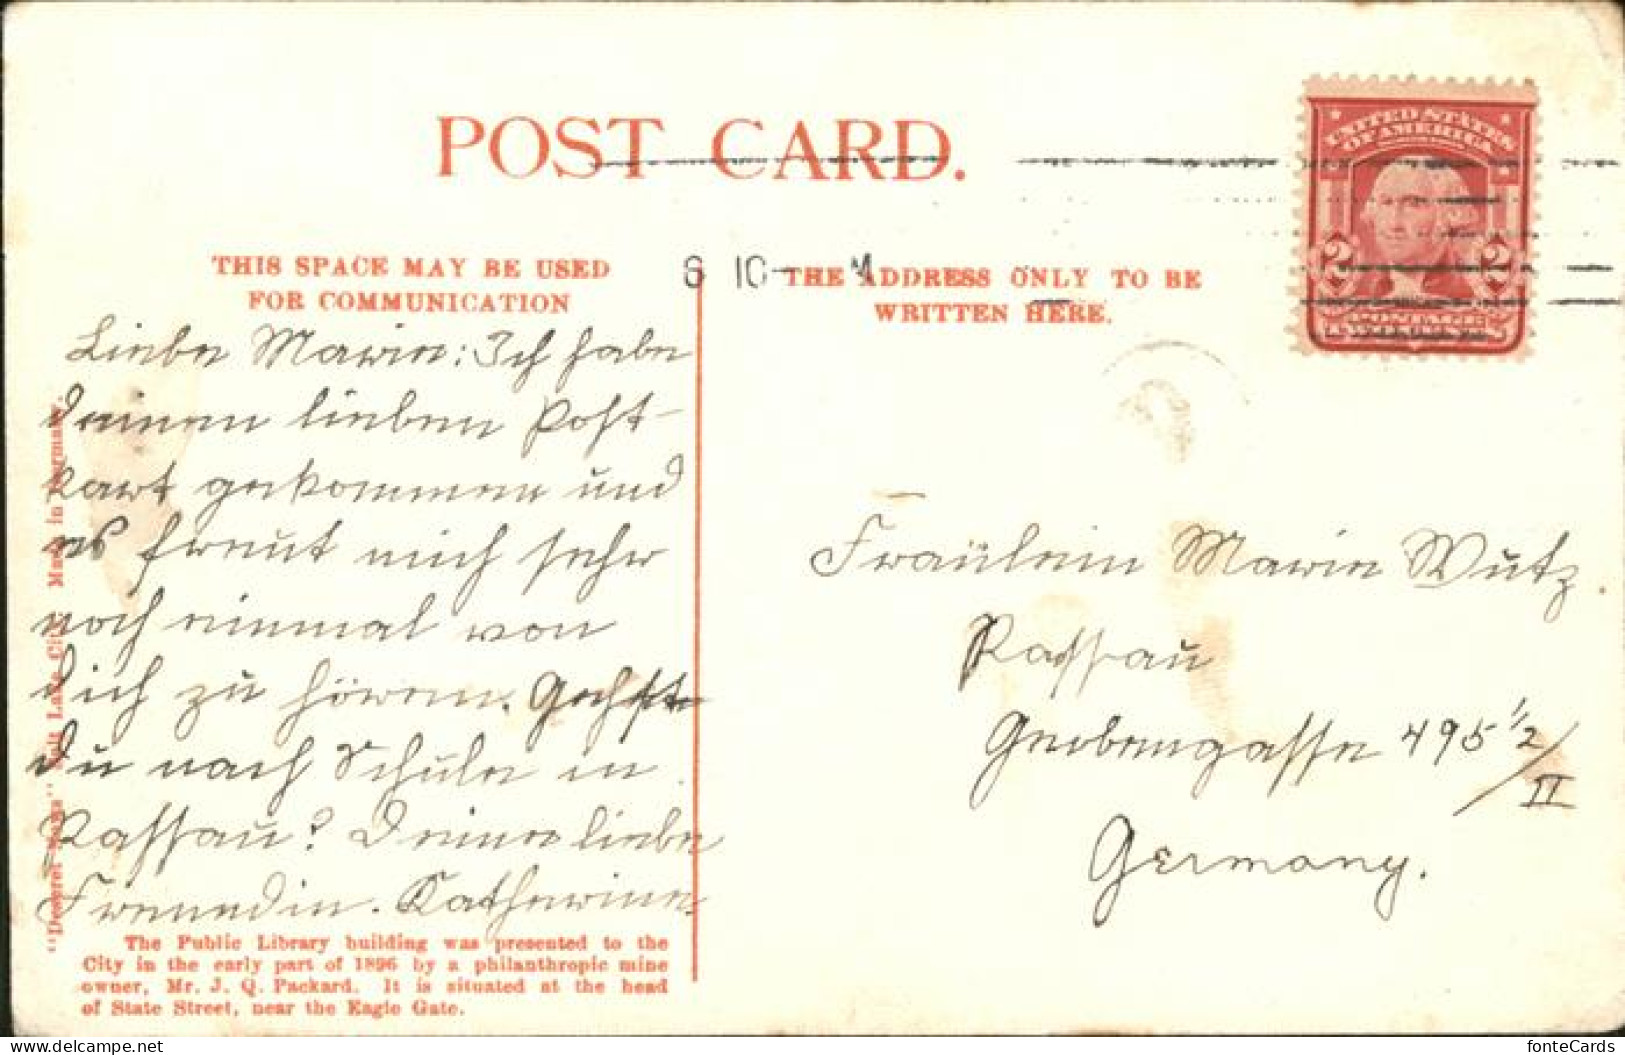 POST CARD.
THIS SPACE MAY BE USED
FOR COMMUNICATION
6 10- M
THE ADDRESS ONLY TO BE
WRITTEN HERE.
UNITED STATES
OF AMERICA
2 2
Liebe Marie: Ich habe
deinen lieben Post-
kart gekommen und
es freut mich sehr
noch einmal von
dich zu hören. Gehst
du nach Schule in
Passau? Deine liebe
Freundin. Katherine
Fräulein Marie Wutz.
Passau
Grabengasse 495 1/2/II
Germany.
The Public Library building was presented to the
City in the early part of 1896 by a philanthropic mine
owner, Mr. J. Q. Packard. It is situated at the head
of State Street, near the Eagle Gate.
"Deseret News" Salt Lake City. Made in Germany.
www.delcampe.net
fonteCards